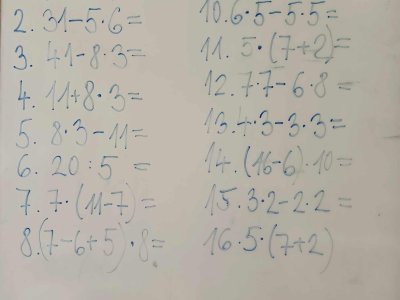 2. 31-5·6=
3. 41-8·3=
4. 11+8·3=
5. 8·3-11=
6. 20:5 =
7. 7·(11-7)=
8.(7-6+5)·8=
10.6·5-5·5=
11. 5·(7+2)=
12.7·7-6·8=
13.4·3-3·3=
14.(16-6)·10=
15.3·2-2·2=
16·5·(7+2)